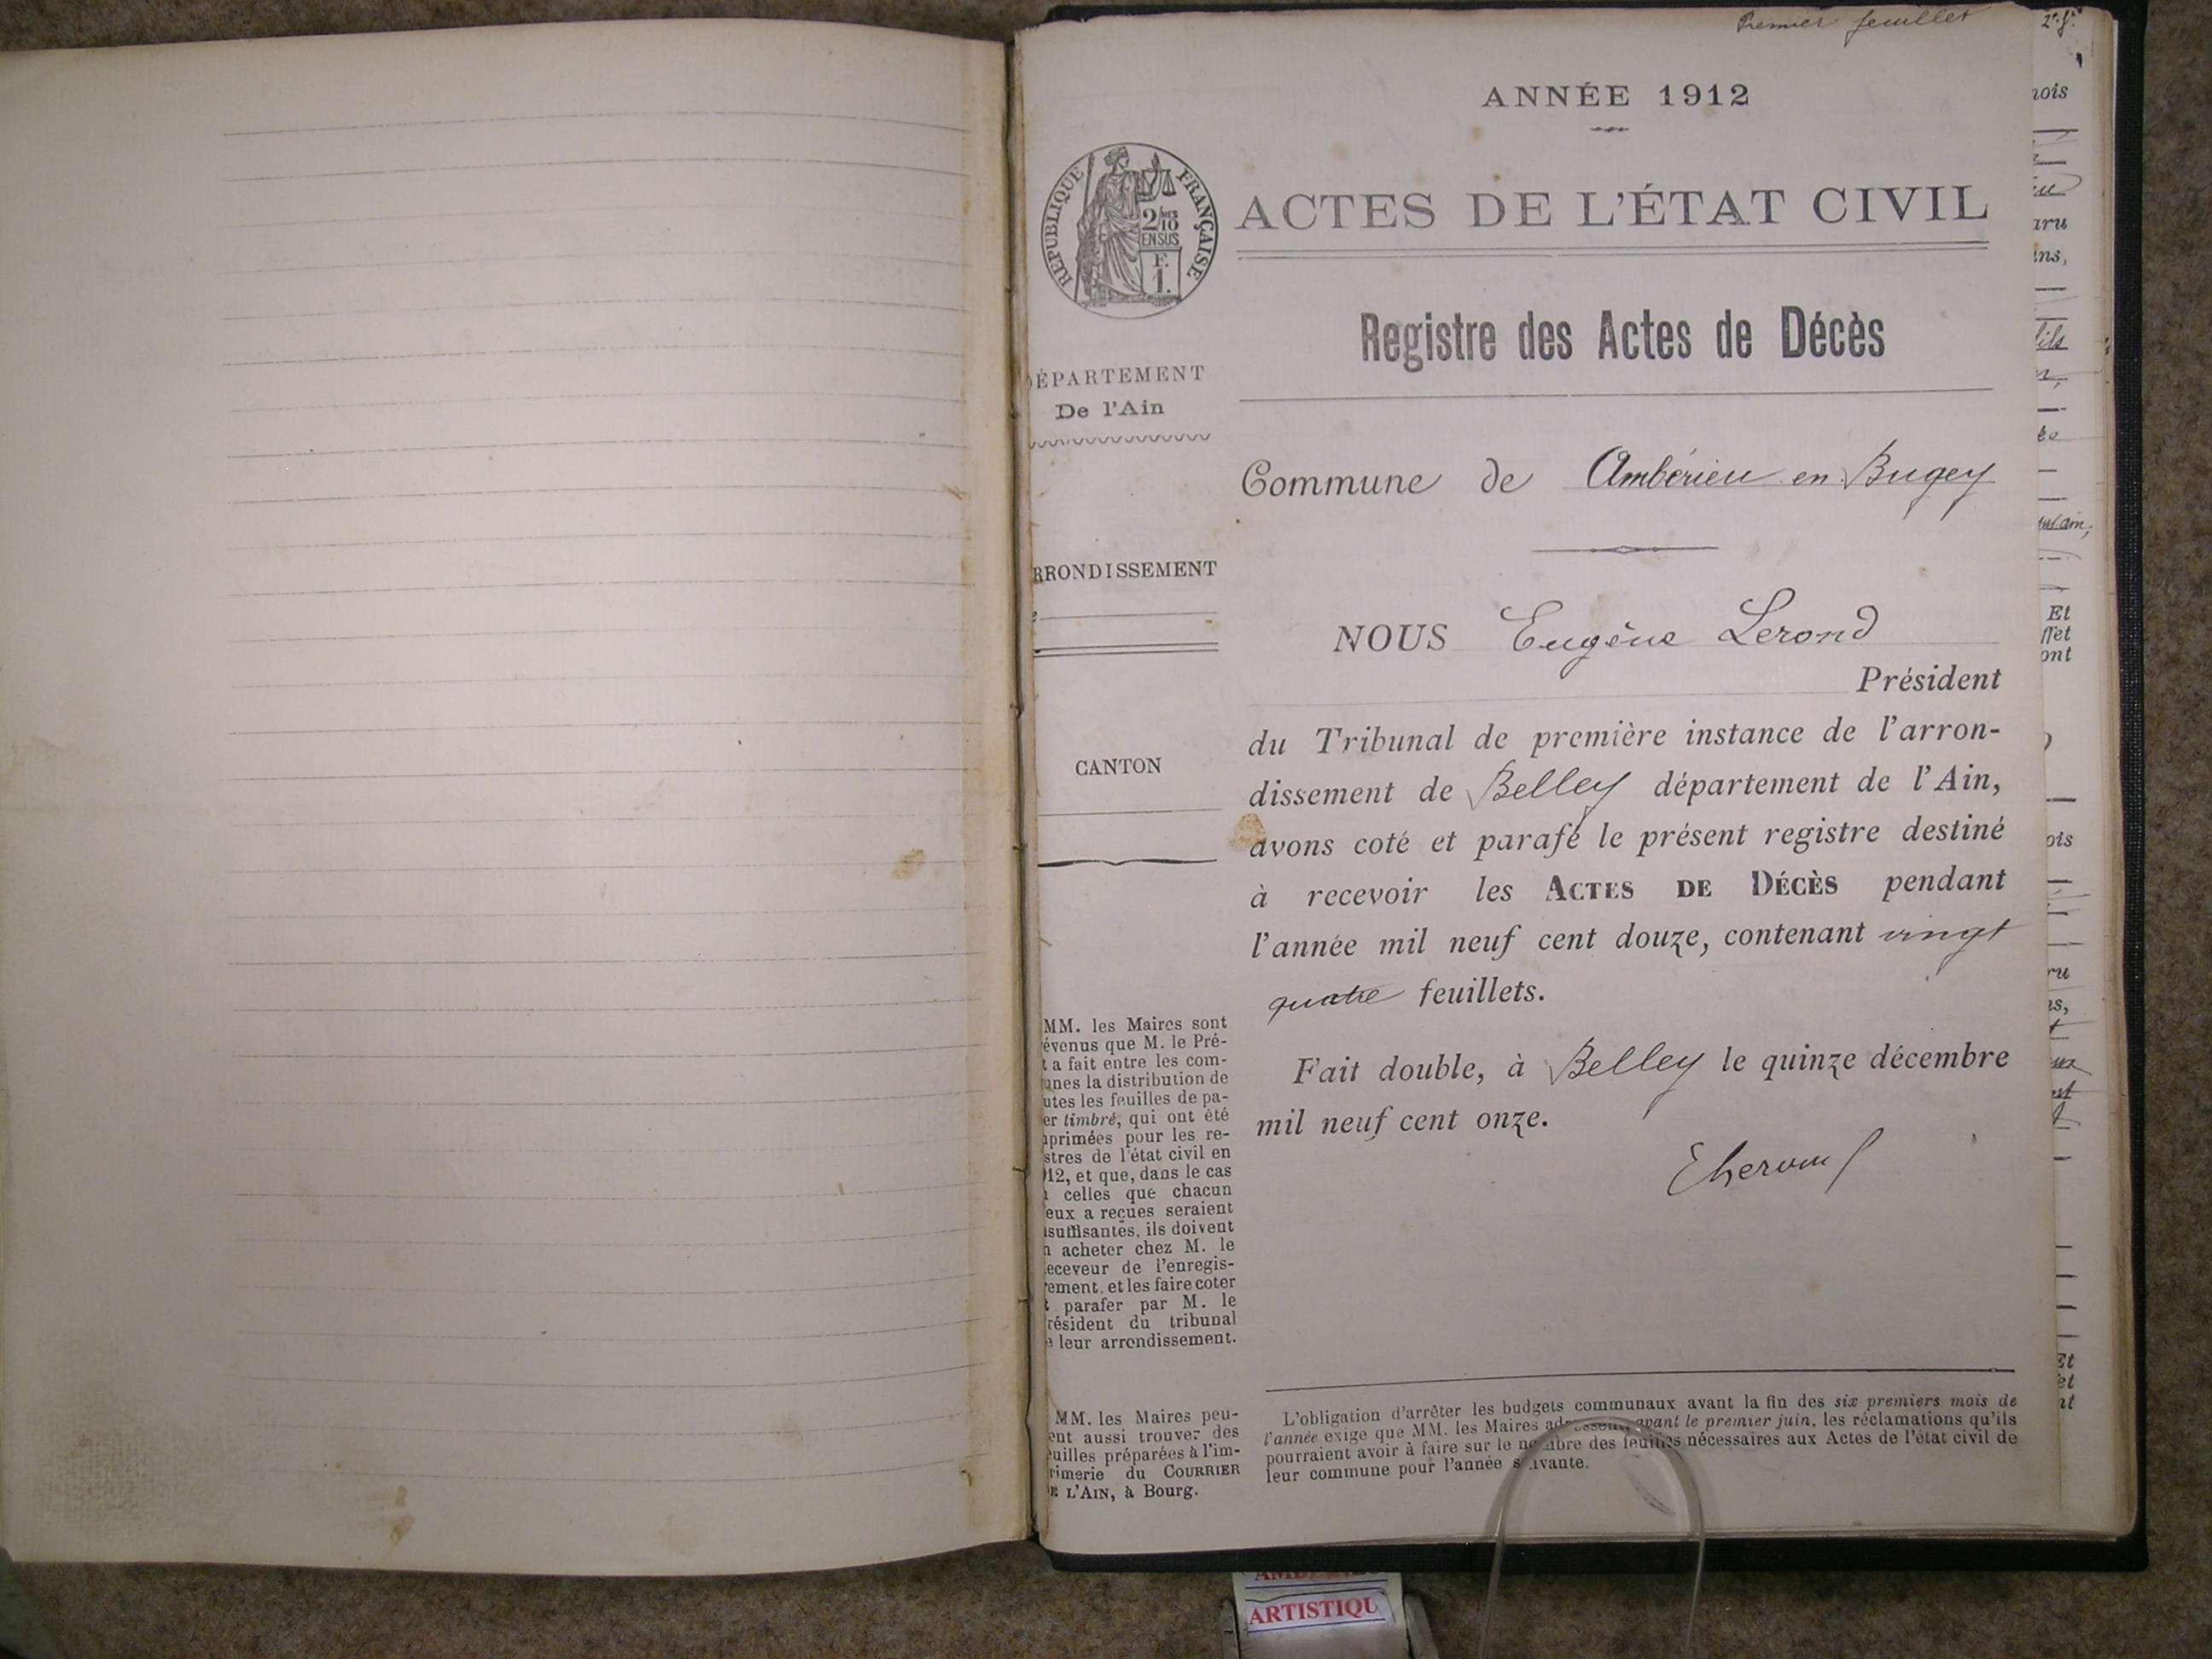 Premier feuillet
2e f.
ANNÉE 1912
RÉPUBLIQUE FRANÇAISE
2/10
EN SUS
F.
1.
ACTES DE L'ÉTAT CIVIL
Registre des Actes de Décès
ÉPARTEMENT
De l'Ain
Commune de Ambérieu en Bugey
RRONDISSEMENT
NOUS Eugène Lerond
Président
CANTON
du Tribunal de première instance de l'arron-
dissement de Belley département de l'Ain,
avons coté et parafé le présent registre destiné
à recevoir les ACTES DE DÉCÈS pendant
l'année mil neuf cent douze, contenant vingt
quatre feuillets.
Fait double, à Belley le quinze décembre
mil neuf cent onze.
MM. les Maires sont
évenus que M. le Pré-
t a fait entre les com-
unes la distribution de
utes les feuilles de pa-
er timbré, qui ont été
primées pour les re-
stres de l'état civil en
12, et que, dans le cas
celles que chacun
eux a reçues seraient
suffisantes, ils doivent
n acheter chez M. le
eceveur de l'enregis-
rement, et les faire coter
t parafer par M. le
résident du tribunal
e leur arrondissement.
MM. les Maires peu-
ent aussi trouver des
euilles préparées à l'im-
rimerie du COURRIER
DE L'AIN, à Bourg.
L'obligation d'arrêter les budgets communaux avant la fin des six premiers mois de
l'année exige que MM. les Maires adressent, avant le premier juin, les réclamations qu'ils
pourraient avoir à faire sur le nombre des feuilles nécessaires aux Actes de l'état civil de
leur commune pour l'année suivante.
ARTISTIQU